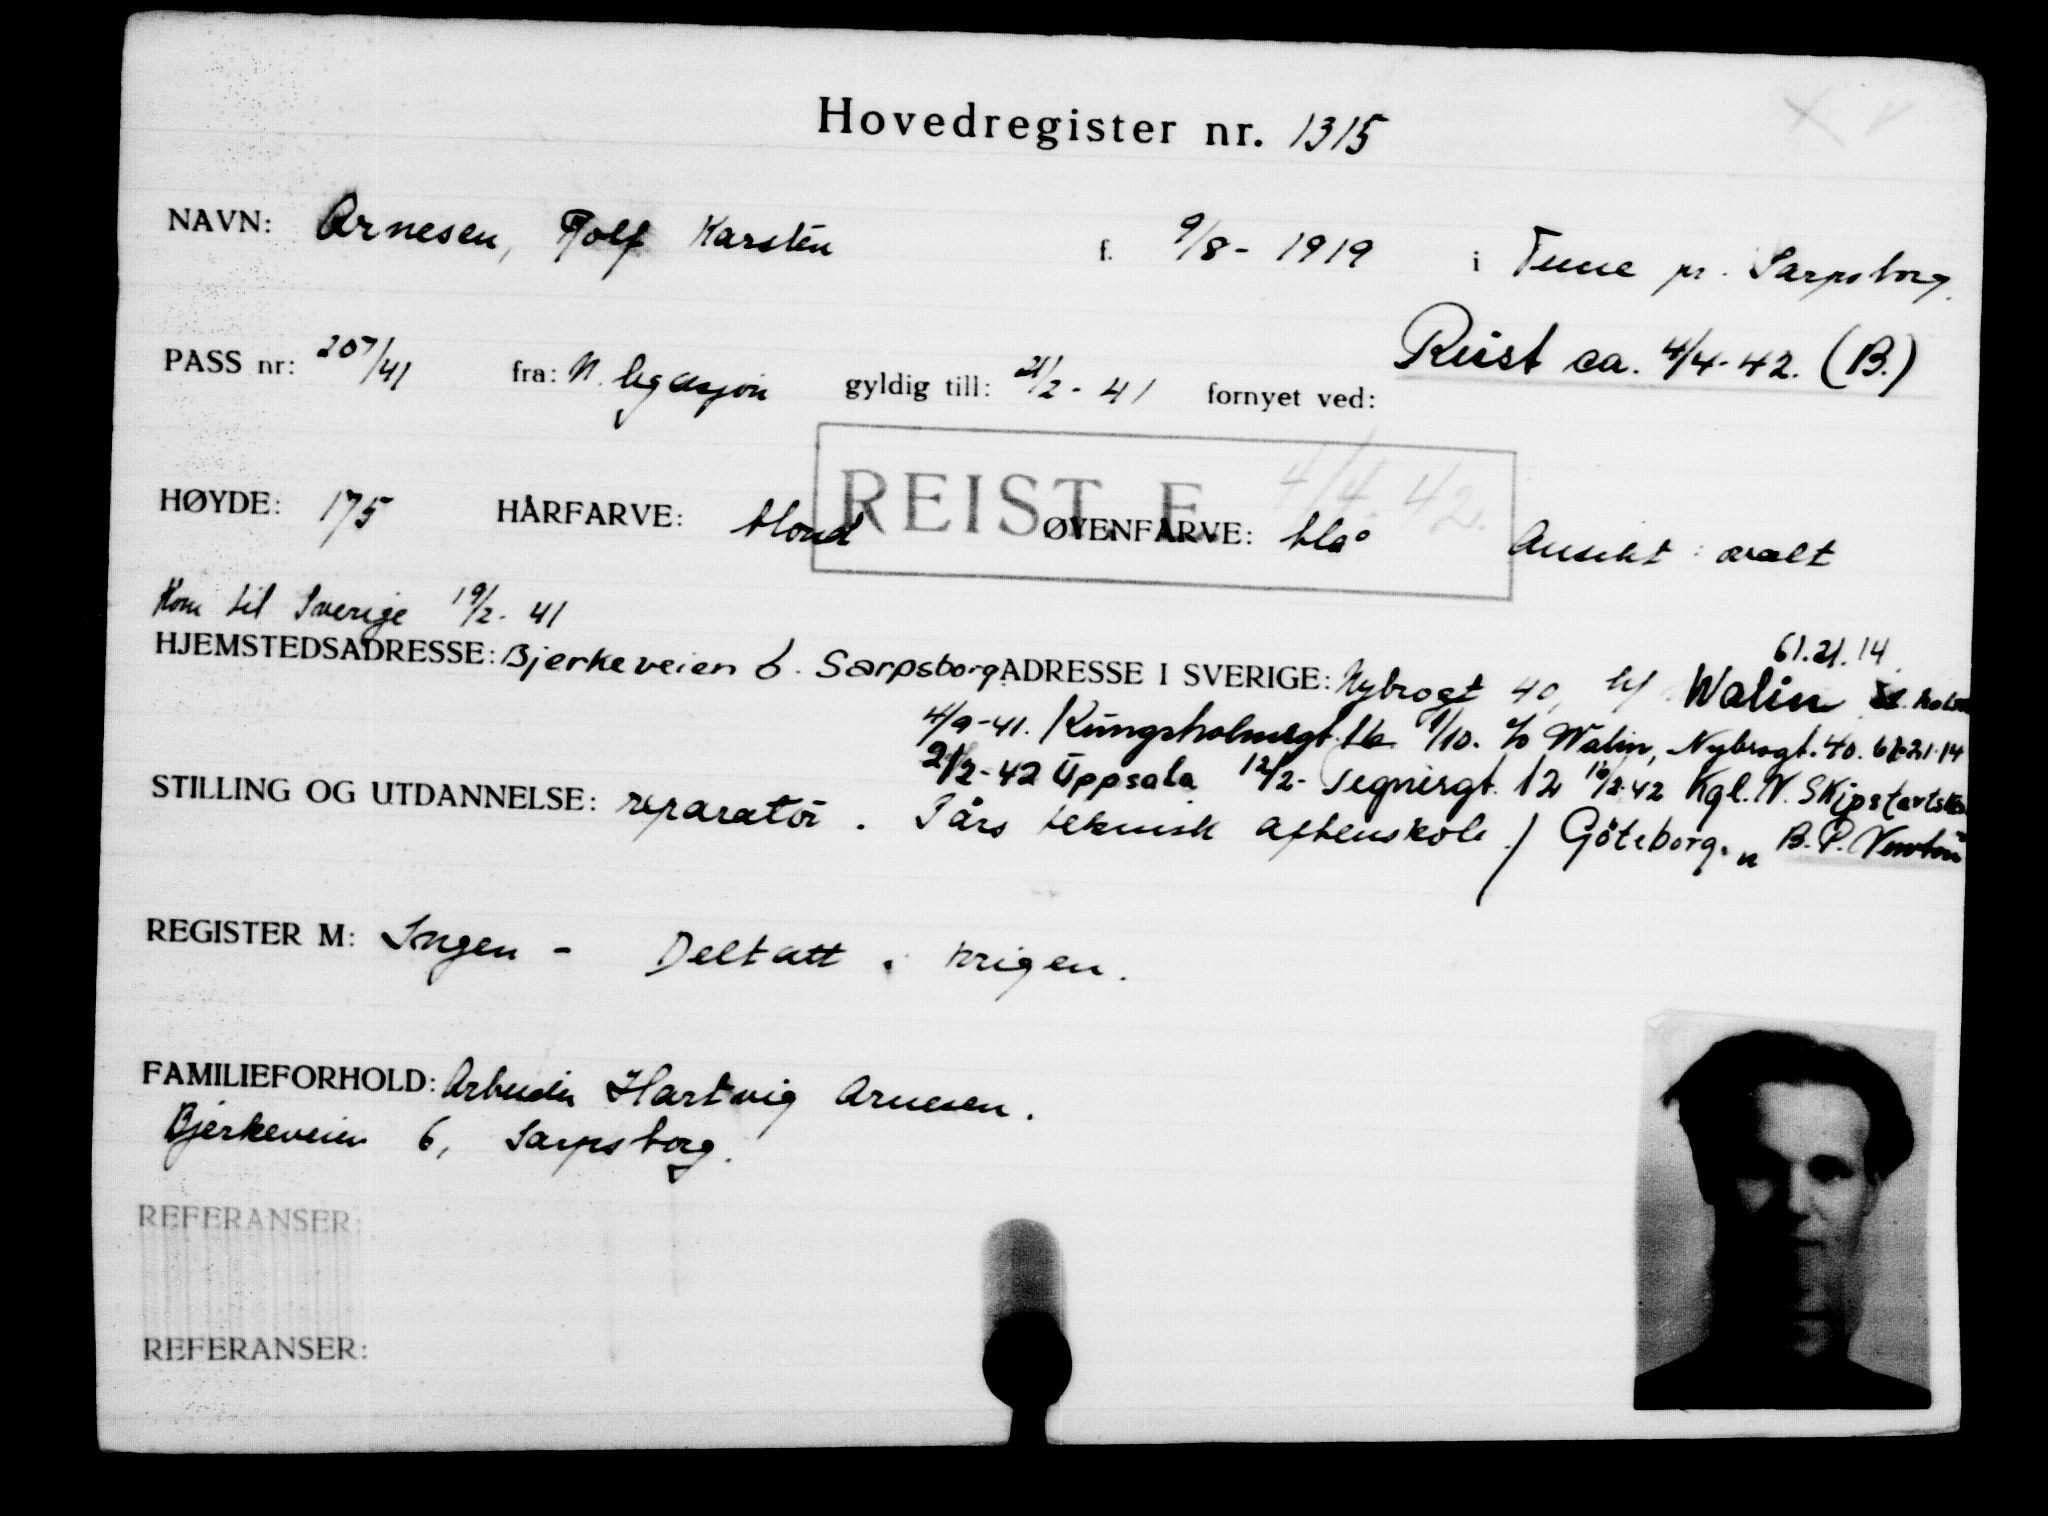 Hovedregister nr. 1315
NAVN: Arnesen, Rolf Karsten f. 9/8 - 1919 i Tune pr. Sarpsborg.
Reist ca. 4/4-42. (B.)
PASS nr: 207/41 fra: N. legasjon gyldig till: 21/2 - 41 fornyet ved:
REIST. F. 4/4.42.
HØYDE: 175 HÅRFARVE: blond ØYENFARVE: blå Ansikt: ovalt
Kom til Sverige 19/2 - 41
61.21.14
HJEMSTEDSADRESSE: Bjerkeveien 6. Sarpsborg. ADRESSE I SVERIGE: Nybrogt 40, Walin
4/9-41. Kungsholmsgt. 16. 9/10. c/o Walin, Nybrogt. 40. 61.21.14
21/2-42 Uppsala 12/2- Tegnérsgt. 12 16/2-42 Kgl. N. Skipsfartsk
STILLING OG UTDANNELSE: reparatør. 1 års teknisk aftenskole. / Göteborg. B. P. Newton
REGISTER M: Ingen - Deltatt i krigen.
FAMILIEFORHOLD: Arbeider Hartvig Arnesen.
Bjerkeveien 6, Sarpsborg.
REFERANSER:
REFERANSER: